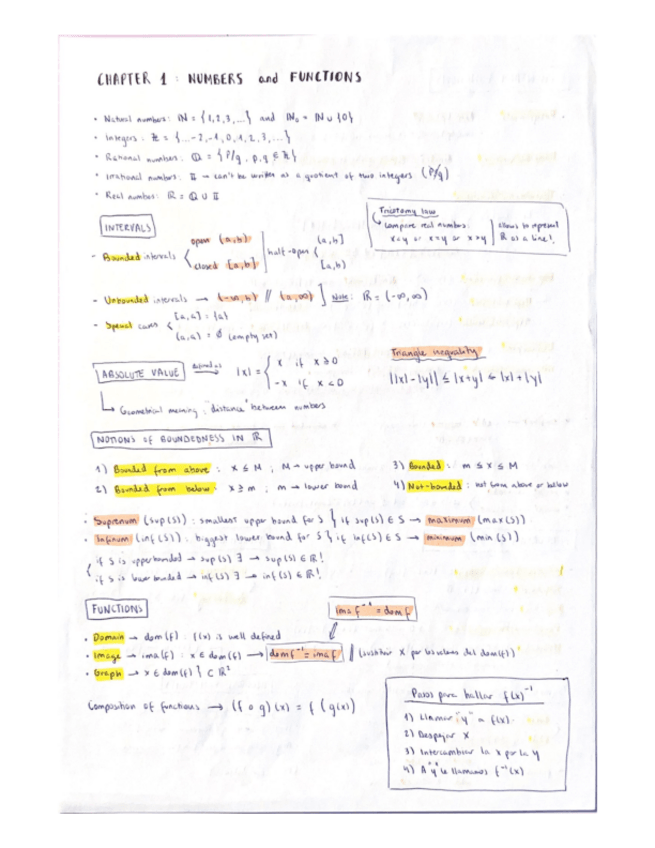 CHAPTER 1 : NUMBERS and FUNCTIONS
• Natural numbers: ℕ = {1,2,3,...} and ℕ₀ = ℕ ∪ {0}
• Integers: ℤ = {...-2,-1,0,1,2,3,...}
• Rational numbers: ℚ = {p/q, p,q ∈ ℤ}
• Irrational numbers: 𝕀 → can't be written as a quotient of two integers (p/q)
• Real number: ℝ = ℚ ∪ 𝕀
Tricotomy law
compare real numbers:
x<y or x=y or x>y
allows to represent
ℝ as a line!
INTERVALS
- Bounded intervals
open (a,b)
closed [a,b]
half-open
(a,b]
[a,b)
- Unbounded intervals → (-∞,b) // (a,∞) ] Note: ℝ = (-∞,∞)
- Special cases
[a,a] = {a}
(a,a) = ∅ (empty set)
ABSOLUTE VALUE
defined as
|x| = { x if x ≥ 0
-x if x < 0
Geometrical meaning: "distance" between numbers
Triangle inequality
||x|-|y|| ≤ |x+y| ≤ |x|+|y|
NOTIONS OF BOUNDEDNESS IN ℝ
1) Bounded from above : x ≤ M ; M → upper bound
2) Bounded from below : x ≥ m ; m → lower bound
3) Bounded : m ≤ x ≤ M
4) Not-bounded : not from above or below
• Supremum (sup(S)) : smallest upper bound for S } if sup(S) ∈ S → maximum (max(S))
• Infimum (inf(S)) : biggest lower bound for S } if inf(S) ∈ S → minimum (min(S))
if S is upper bounded → sup(S) ∃ → sup(S) ∈ ℝ!
if S is lower bounded → inf(S) ∃ → inf(S) ∈ ℝ!
FUNCTIONS
ima f⁻¹ = dom f
• Domain → dom(f) : f(x) is well defined
• Image → ima(f) : x ∈ dom(f) → dom f⁻¹ = ima f // (sustituir x por los valores del dom(f))
• Graph → x ∈ dom(f) } ⊂ ℝ²
Composition of functions → (f ∘ g)(x) = f(g(x))
Pasos para hallar f(x)⁻¹
1) Llamar "y" a f(x).
2) Despejar x
3) Intercambiar la x por la y
4) A "y" le llamamos f⁻¹(x)